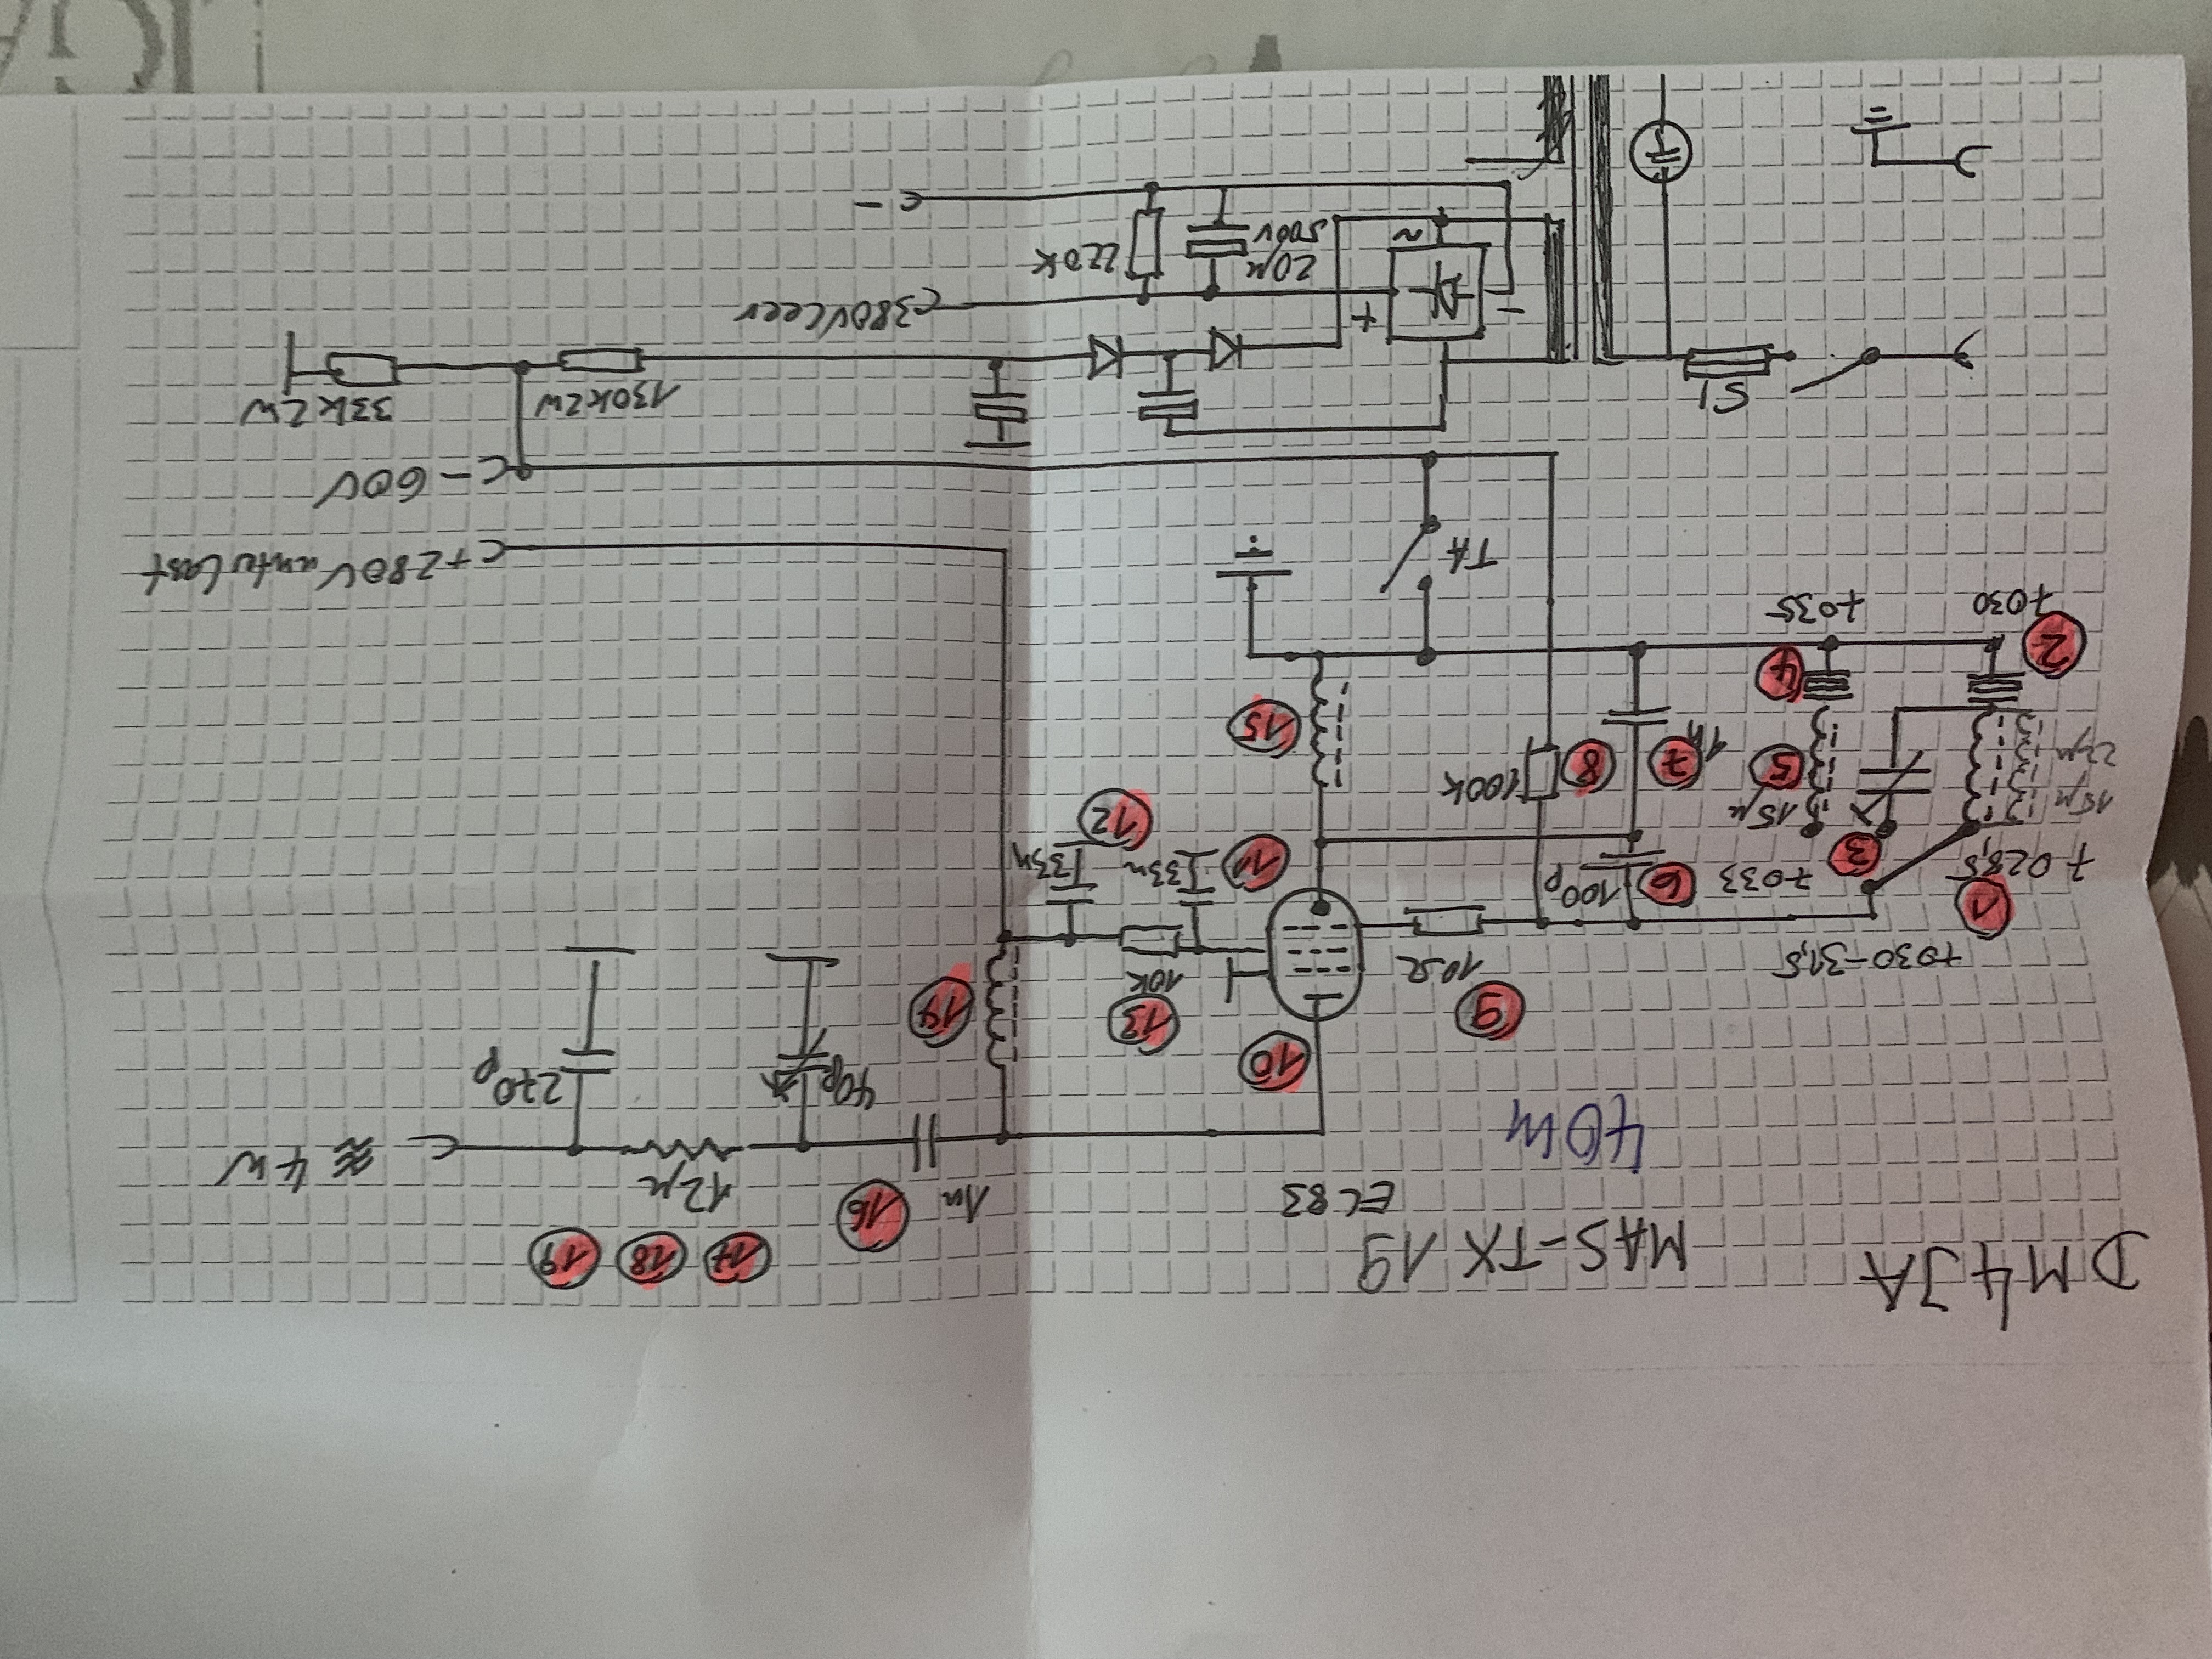 DM4JA
MAS-TX 19
40m
ECL83
19
18
17
16
1n
12µ
≈ 4W
220p
40p
14
13
10k
10
9
10Ω
7030-31,5
1
7028,5
33n
12
33n
11
100p
6
7033
3
15µ
5
15µ
22µ
100k
8
7
1n
15
4
2
7035
7030
TA
+280V unter Last
-60V
33k2W
130k2W
380V leer
+
-
~
20µ
500V
220k
-
Si